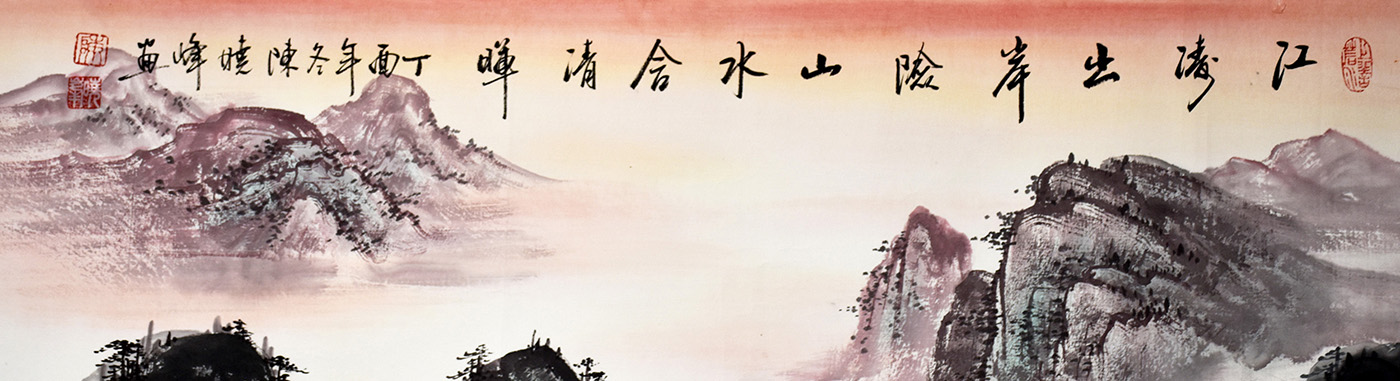 江涛出岸險山水含清暉丁酉年冬陳曉峰画